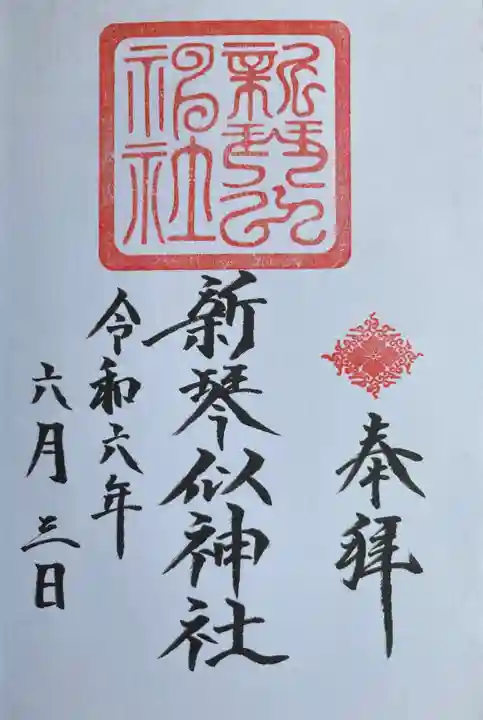 奉拝
新琴似神社
令和六年
六月三日
新琴似
神社